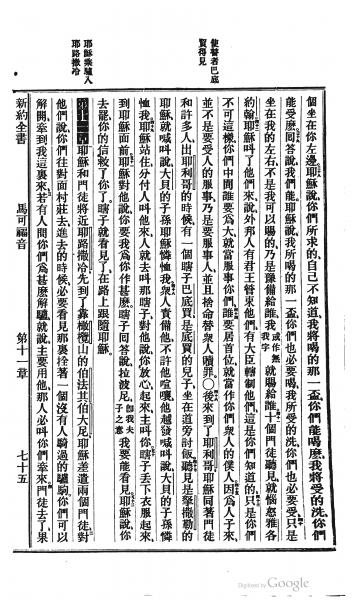 使瞽者巴底
買得見
耶穌乘驢入
耶路撒冷
個坐在你左邊耶穌說你們所求的自己不知道我將喝的那一盃你們能喝麽我將受的洗你們
能受麽囘答說我們能耶穌說我所喝的那一盃你們也必要喝我所受的洗你們也必要受只是
坐在我的左右不是我可以賜的乃是豫備給誰或作無我字就賜給誰十個門徒聽見就惱怒雅各
約翰耶穌叫了他們來說外邦人有君王管束他們有大臣轄制他們這是你們知道的只是你們
不可這樣你們中間誰要爲大就當服事你們誰要居首你就當作你們衆人的僕人因爲人子來
並不是要受人的服事乃是要服事人並且捨命替衆人贖罪○後來到了耶利哥耶穌同著門徒
和許多人出耶利哥的時候有一個瞎子巴底買是底買的兒子坐在道旁討飯聽見是拏撒勒的
耶穌就喊叫說大貝的子孫耶穌憐恤我衆人責備他不許他喧嚷他越發喊叫說大貝的子孫憐
恤我耶穌站住分付人叫他來人就去叫那瞎子對他說你放心起來主叫你瞎子丟下衣服起來
到耶穌面前耶穌對他說你要我爲你作甚麽瞎子囘答說拉波尼卽我夫子之意我要能看見耶穌說你
去罷你的信救了你了瞎子就看見了在路上跟隨耶穌
第十一章耶穌和門徒將近耶路撒冷先到了靠橄欖山的伯法其伯大尼耶穌差遣兩個門徒對
他們說你們往對面村莊去進去的時候必要看見那裏拴著一個沒有人騎過的驢駒你們可以
解開牽到我這裏來若有人問你們爲甚麽解驢就說主要用他那人必叫你們牽來門徒去了果
新約全書 馬可福音 第十一章 七十五
Digitized by Google